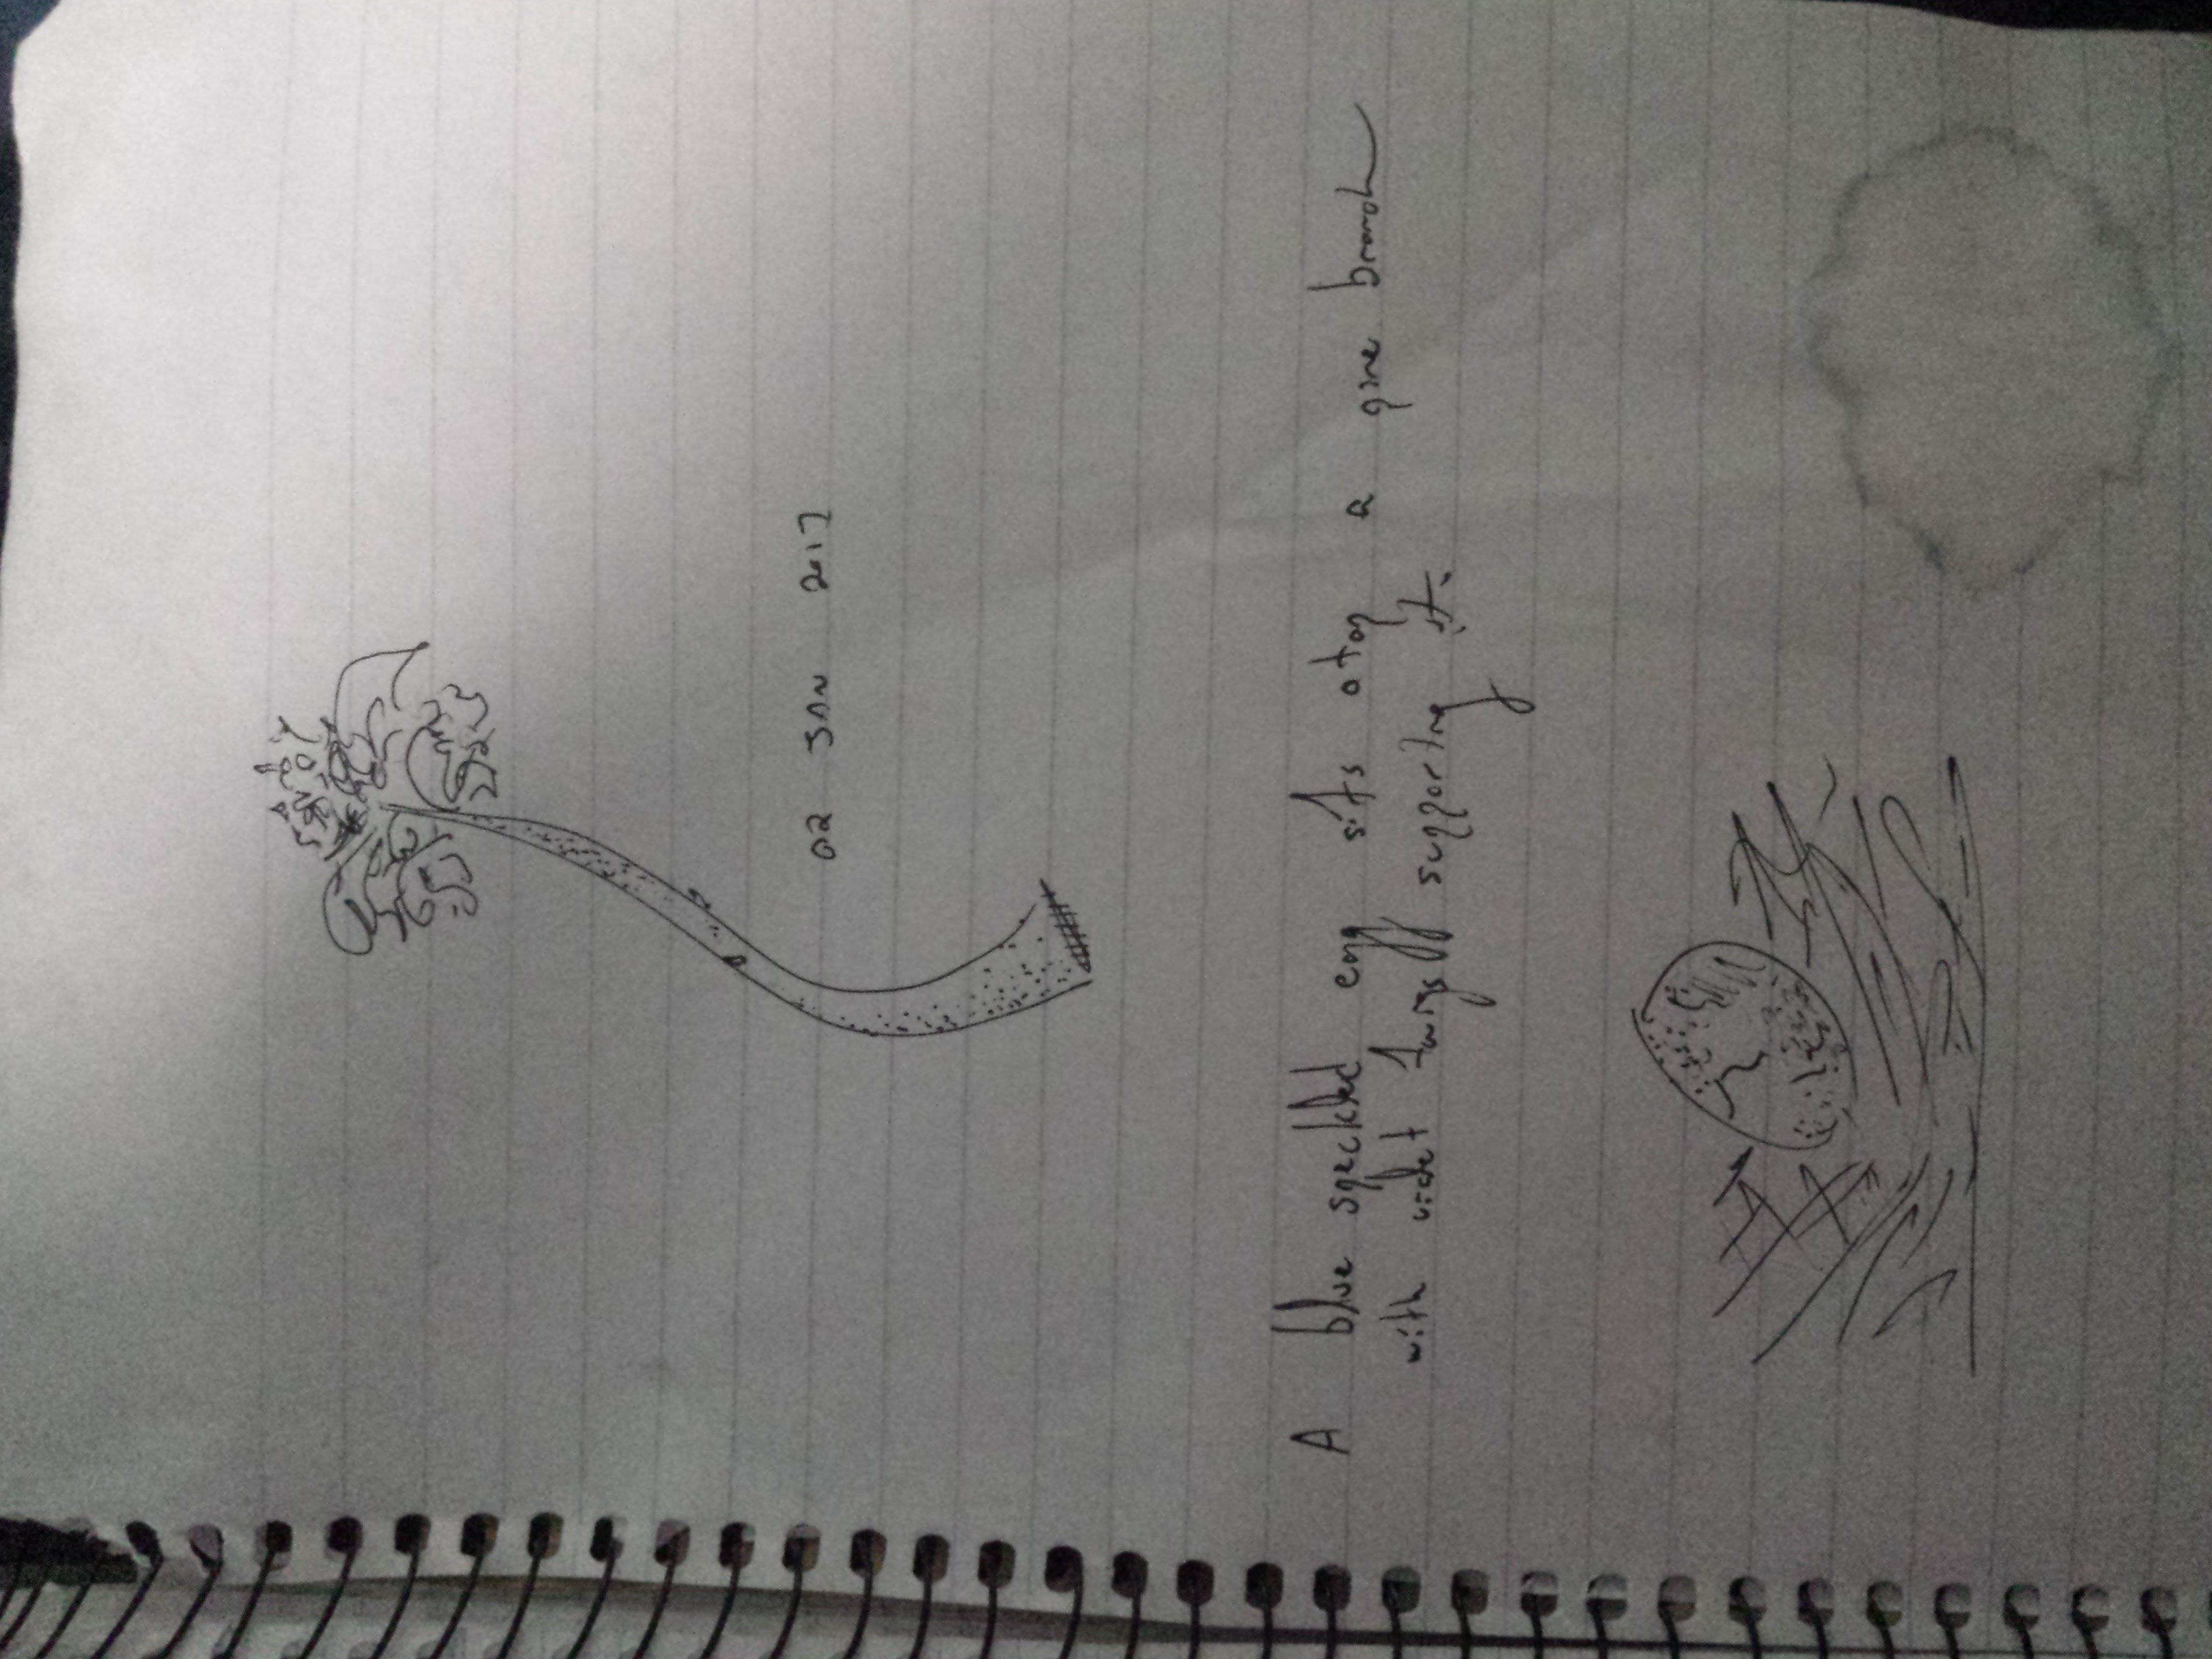 02 JAN 2017
A blue speckled egg sits atop a pine branch
with violet twigs supporting it.